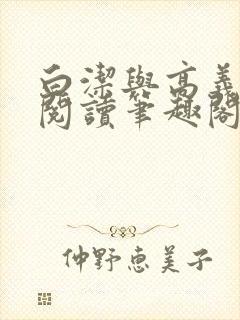 白潔與高義
閱讀筆趣閣
仲野恵美子